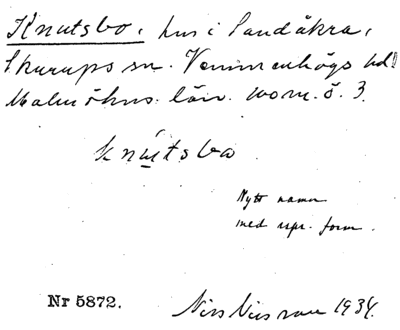 Knutsbo, hus i Sandåkra,
Skurups sn. Vemmenhögs hd
Malmöhus. län. wom. ö. 3.
knutsbo
Nytt namn
med upr. form.
Nr 5872.
Nils Nilsson 1934.